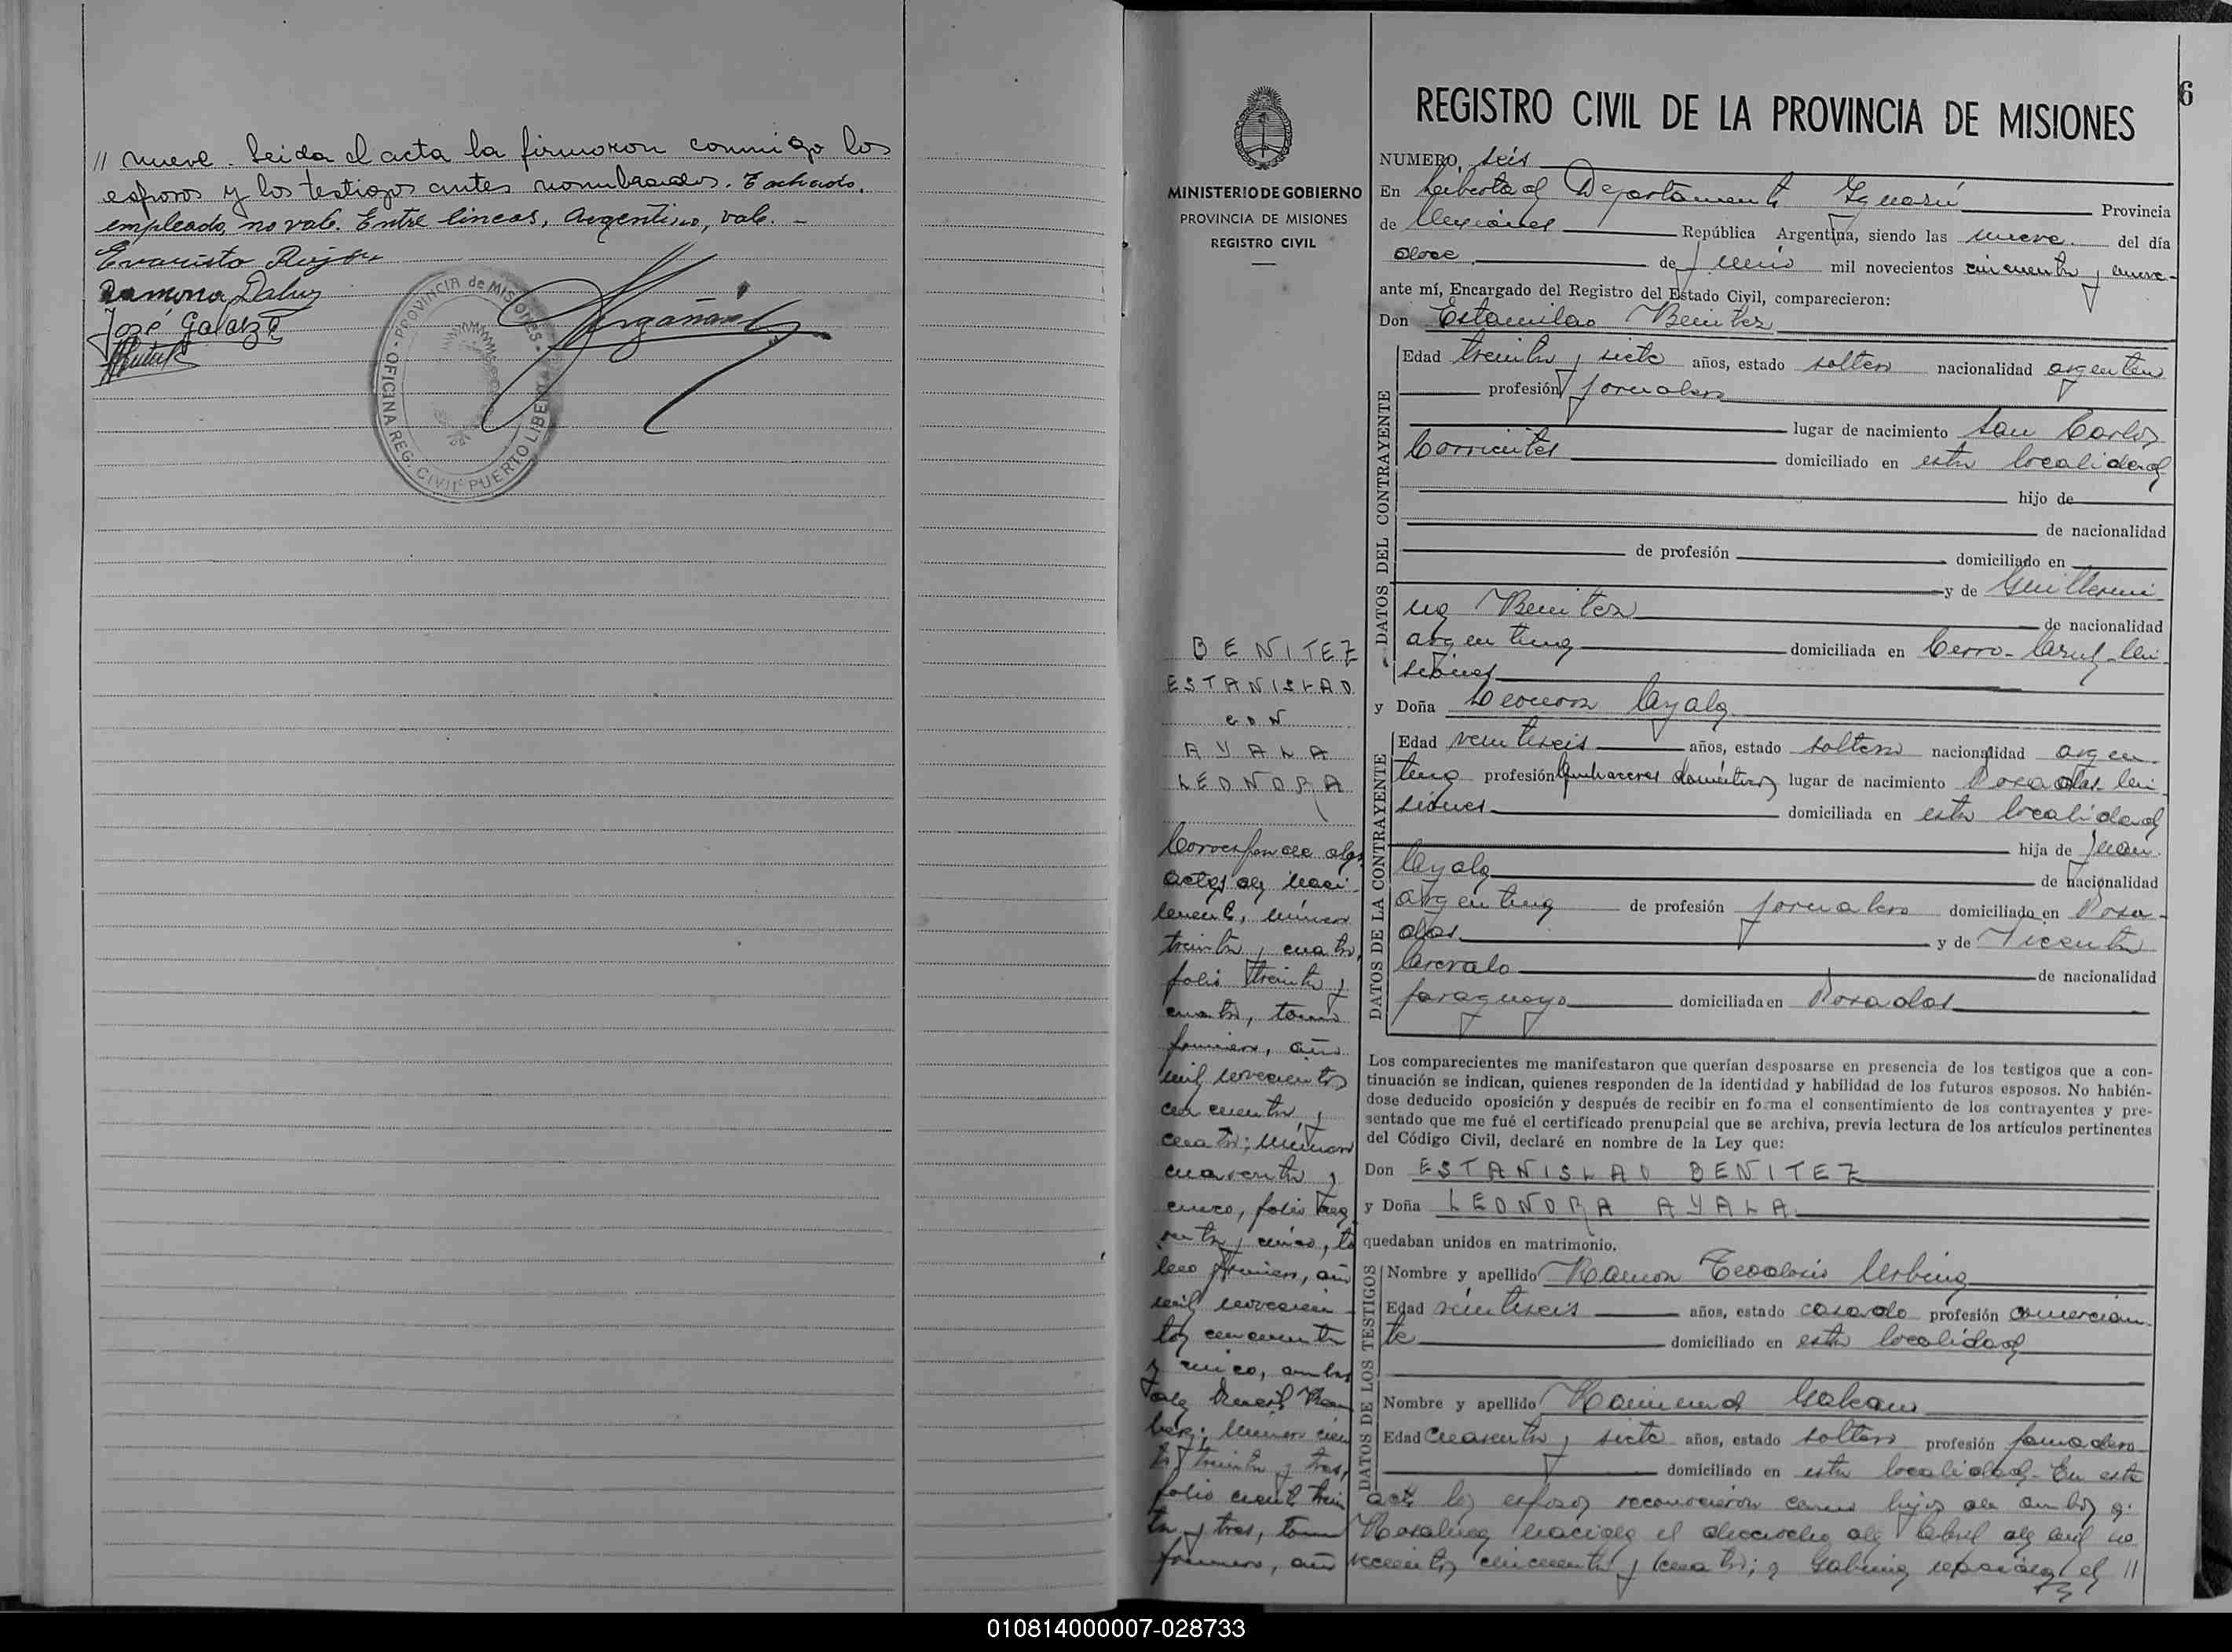 // nueve. Leida el acta la firmaron conmigo los
esposos y los testigos antes nombrados. Tachado,
empleado, no vale. Entre lineas, Argentino, vale. -
Evaristo
Ramona Daluz
José Galarza
OFICINA REG. CIVIL PUERTO LIBERTAD - PROVINCIA de MISIONES -
6
REGISTRO CIVIL DE LA PROVINCIA DE MISIONES
MINISTERIO DE GOBIERNO
PROVINCIA DE MISIONES
REGISTRO CIVIL
NUMERO seis
En Libertad Departamento Iguazú Provincia
de Misiones República Argentina, siendo las nueve del día
doce de Junio mil novecientos cincuenta y nueve-
ante mí, Encargado del Registro del Estado Civil, comparecieron:
Don Estanislao Benitez
DATOS DEL CONTRAYENTE
Edad treinta y siete años, estado soltero nacionalidad argentino
profesión jornalero
lugar de nacimiento San Carlos
Corrientes domiciliado en esta localidad
hijo de
de nacionalidad
de profesión domiciliado en
y de Guillermi
na Benitez de nacionalidad
argentina domiciliada en Cerro-Azul-Mi
siones
y Doña Leonora Ayala
DATOS DE LA CONTRAYENTE
Edad veintiseis años, estado soltera nacionalidad argen-
tina profesión Quehaceres domésticos lugar de nacimiento Posadas-Mi
siones domiciliada en esta localidad
hija de Juan
Ayala de nacionalidad
argentina de profesión jornalero domiciliado en Posa-
das y de Vicenta
Arevalo de nacionalidad
paraguaya domiciliada en Posadas
Los comparecientes me manifestaron que querían desposarse en presencia de los testigos que a con-
tinuación se indican, quienes responden de la identidad y habilidad de los futuros esposos. No habién-
dose deducido oposición y después de recibir en forma el consentimiento de los contrayentes y pre-
sentado que me fué el certificado prenupcial que se archiva, previa lectura de los artículos pertinentes
del Código Civil, declaré en nombre de la Ley que:
Don ESTANISLAO BENITEZ
y Doña LEONORA AYALA
quedaban unidos en matrimonio.
DATOS DE LOS TESTIGOS
Nombre y apellido Ramon Teodoro
Edad veintiseis años, estado casado profesión comercian-
te domiciliado en esta localidad
Nombre y apellido Raimundo Galeano
Edad Cuarenta y siete años, estado soltero profesión
domiciliado en esta localidad- En este
acto los esposos reconocieron como hijos de ambos a:
Rosalina nacida el dieciocho de Abril de mil no
vecientos cincuenta y cuatro; a Gabina nacida el //
BENITEZ
ESTANISLAO
CON
AYALA
LEONORA
Corresponde a las
actas de naci-
miento, número
treinta y cuatro,
folio treinta y
cuatro, tomo
primero, año
mil novecientos
cincuenta y
cuatro; número
cuarenta y
cinco, folio cua
renta y cinco, to
mo primero, año
mil novecien-
tos cincuenta
y cinco, ambas
de
número cien
to treinta y tres,
folio ciento trein
ta y tres, tomo
primero, año
010814000007-028733